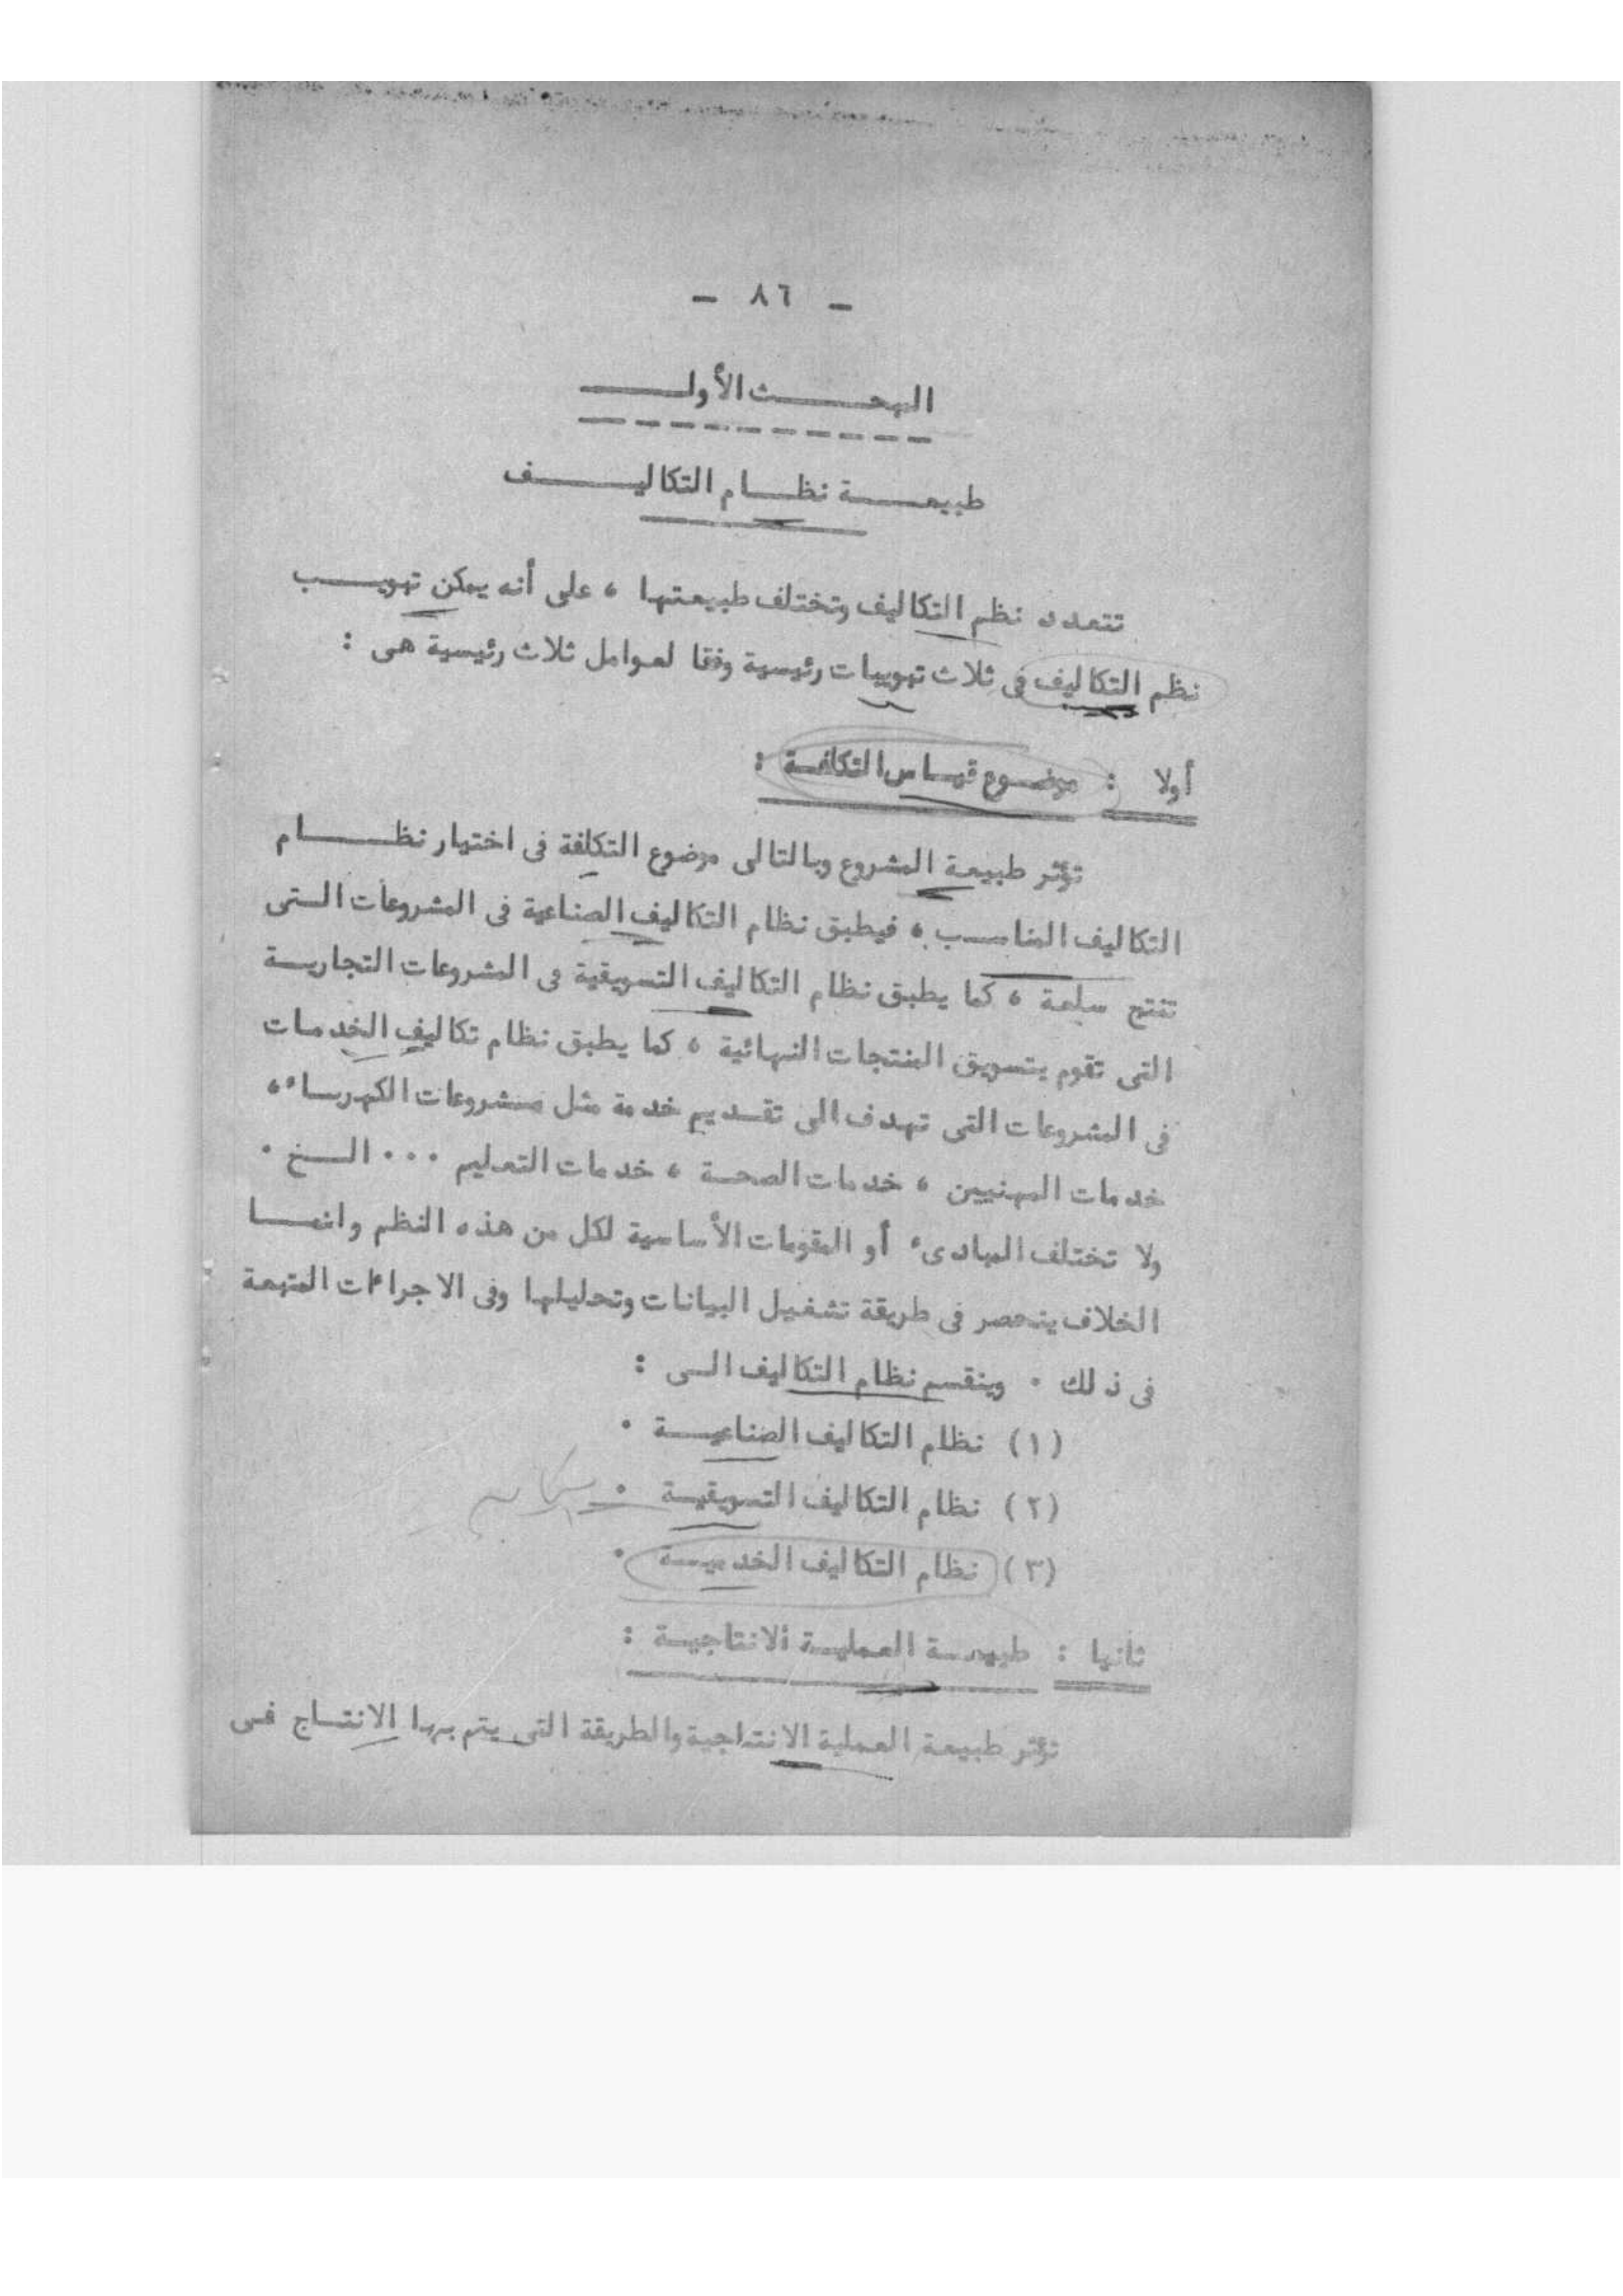 - ٨٦ -
البحث الأول
طبيعة نظام التكاليف
تتعدد نظم التكاليف وتختلف طبيعتها ، على أنه يمكن تبويب
نظم التكاليف فى ثلاث تبويبات رئيسية وفقا لعوامل ثلاث رئيسية هى :
أولا : موضوع قياس التكلفة :
تؤثر طبيعة المشروع وبالتالى موضوع التكلفة فى اختيار نظام
التكاليف المناسب ، فيطبق نظام التكاليف الصناعية فى المشروعات التى
تنتج سلعة ، كما يطبق نظام التكاليف التسويقية فى المشروعات التجارية
التى تقوم بتسويق المنتجات النهائية ، كما يطبق نظام تكاليف الخدمات
فى المشروعات التى تهدف الى تقديم خدمة مثل مشروعات الكهرباء ،
خدمات المهنيين ، خدمات الصحة ، خدمات التعليم ... الخ .
ولا تختلف المبادىء أو المقومات الأساسية لكل من هذه النظم وانما
الخلاف ينحصر فى طريقة تشغيل البيانات وتحليلها وفى الاجراءات المتبعة
فى ذلك . وينقسم نظام التكاليف الى :
(١) نظام التكاليف الصناعية .
(٢) نظام التكاليف التسويقية .
(٣) نظام التكاليف الخدمية .
ثانيا : طبيعة العملية الانتاجية :
تؤثر طبيعة العملية الانتاجية والطريقة التى يتم بها الانتاج فى